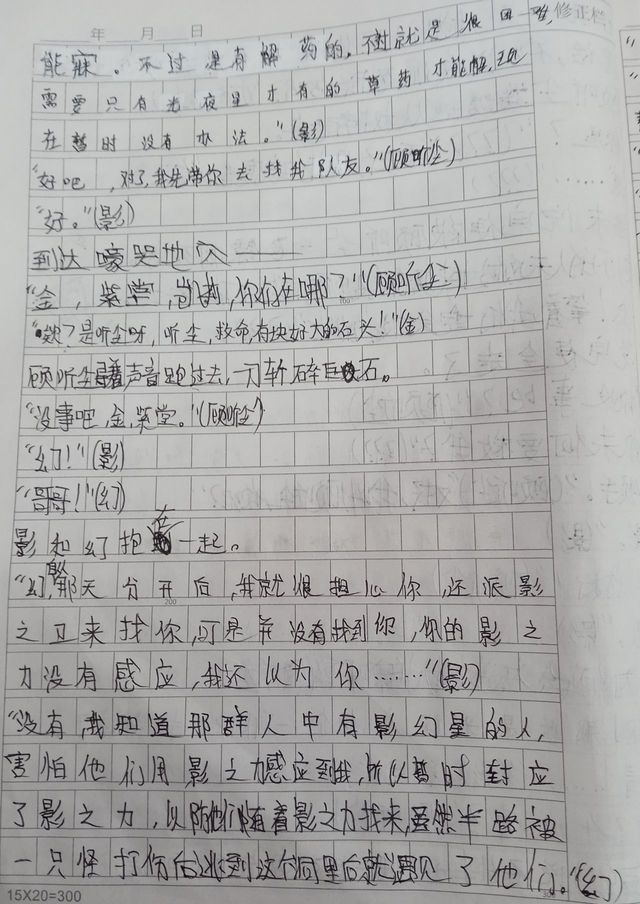 年 月 日
能寐。不过是有解药的。不过就是很困难,修正档
需要只有光夜星才有的草药才能解,现
在暂时没有办法。"(影)
"好吧,对了,我先带你去找我队友。"(顾听尘)
"好。"(影)
到达嚎哭地穴———
"金,紫堂,凯莉,你们在哪?"(顾听尘)
"欸?是听尘呀,听尘,救命,有块好大的石头!"(金)
顾听尘寻着声音跑过去,一刀斩碎巨石。
"没事吧,金,紫堂。"(顾听尘)
"幻!"(影)
"哥哥!"(幻)
影和幻抱在一起。
"幻,那天分开后,我就很担心你,还派影
200
之卫来找你,可是并没有找到你,你的影之
力没有感应,我还以为你……"(影)
"没有,我知道那群人中有影幻星的人,
害怕他们用影之力感应到我,所以暂时封应
了影之力,以防他们随着影之力找来,虽然半路被
一只怪打伤后逃到这个洞里后就遇见了他们。"(幻)
15X20=300